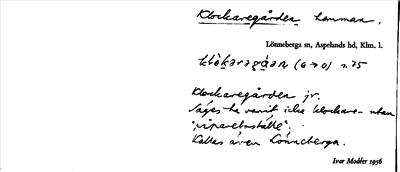 Klockaregården hemman.
Lönneberga sn, Aspelands hd, Klm. l.
Klockaregården jr.
Säges ha varit icke klockare- utan
Kallas även Lönneberga.
Ivar Modéer 1956